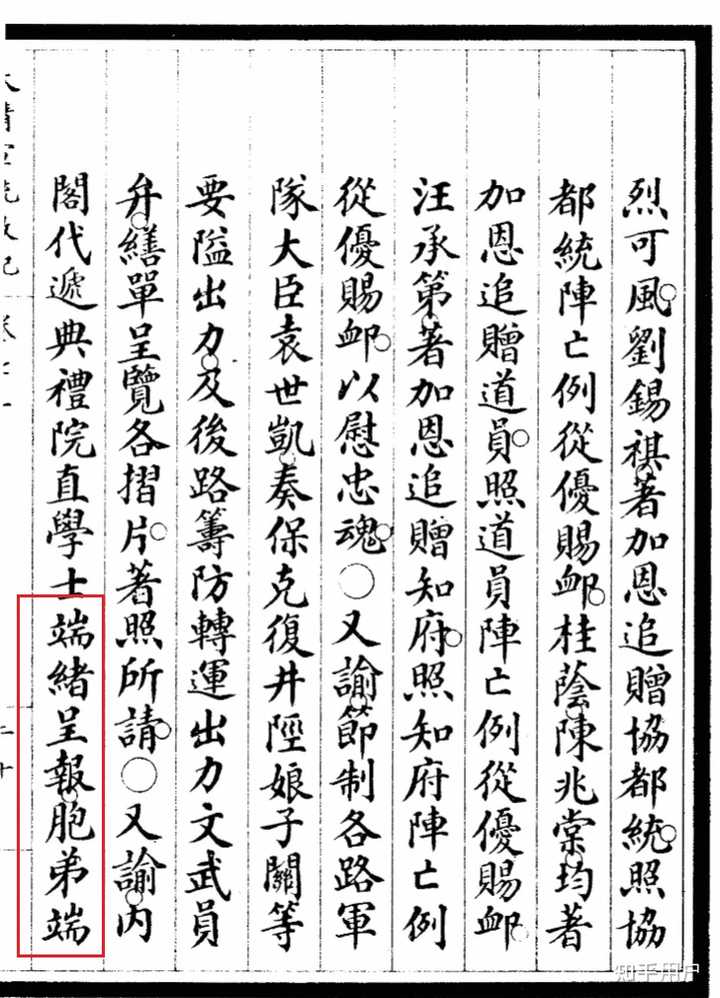 烈可風劉錫祺著加恩追贈協都統照協
都統陣亡例從優賜卹桂蔭陳兆棠均著
加恩追贈道員照道員陣亡例從優賜卹
汪承第著加恩追贈知府照知府陣亡例
從優賜卹以慰忠魂〇又諭節制各路軍
隊大臣袁世凱奏保克復井陘娘子關等
要隘出力及後路籌防轉運出力文武員
弁繕單呈覽各摺片著照所請〇又諭內
閣代遞典禮院直學士端緒呈報胞弟端
知乎用户